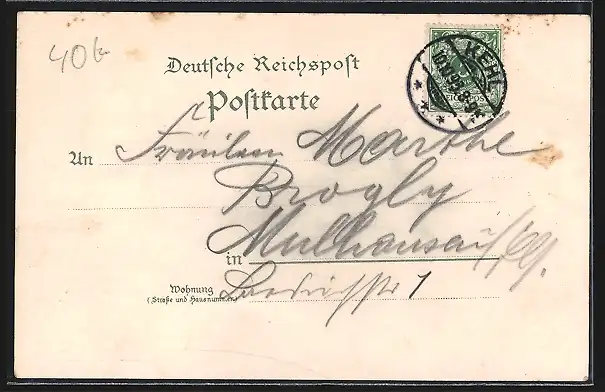 40k
Deutsche Reichspost
Postkarte
KEHL
An Fräulein Marthe
Brogly
in Mulhausen i/Els.
Wohnung
(Straße und Hausnummer)
1